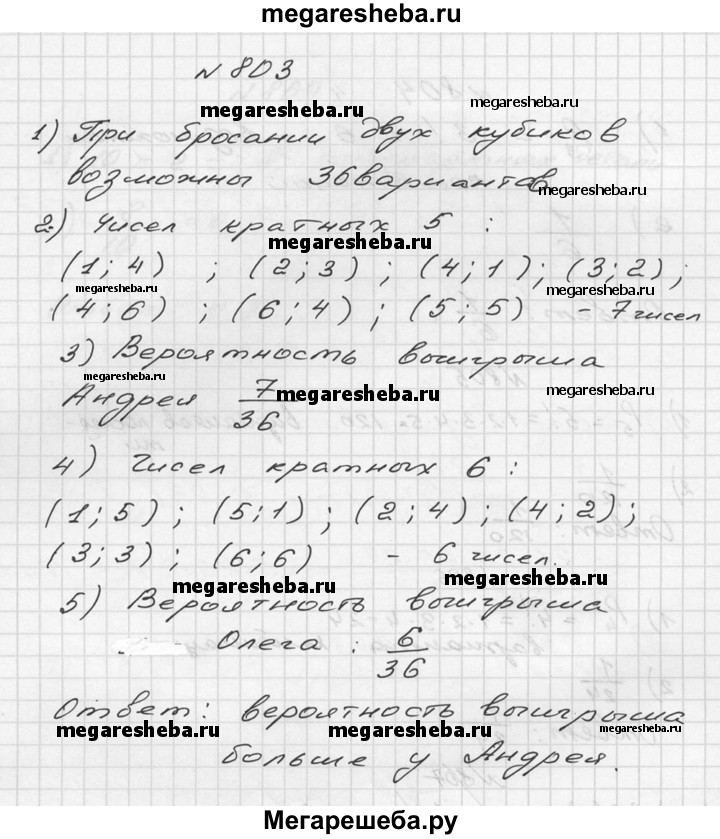 megaresheba.ru
№ 803
megaresheba.ru
megaresheba.ru
1) При бросании двух кубиков
возможны 36 вариантов
megaresheba.ru
2) Чисел кратных 5 :
megaresheba.ru
(1; 4) ; (2; 3) ; (4; 1) ; (3; 2) ;
megaresheba.ru
megaresheba.ru
(4; 6) ; (6; 4) ; (5; 5) - 7 чисел
megaresheba.ru
3) Вероятность выигрыша
megaresheba.ru
megaresheba.ru
megaresheba.ru
Андрея 7/36
4) Чисел кратных 6 :
(1; 5) ; (5; 1) ; (2; 4) ; (4; 2) ;
(3; 3) ; (6; 6) - 6 чисел.
megaresheba.ru
megaresheba.ru
5) Вероятность выигрыша
Олега : 6/36
Ответ: вероятность выигрыша
megaresheba.ru
megaresheba.ru
megaresheba.ru
больше у Андрея.
Мегарешеба.ру